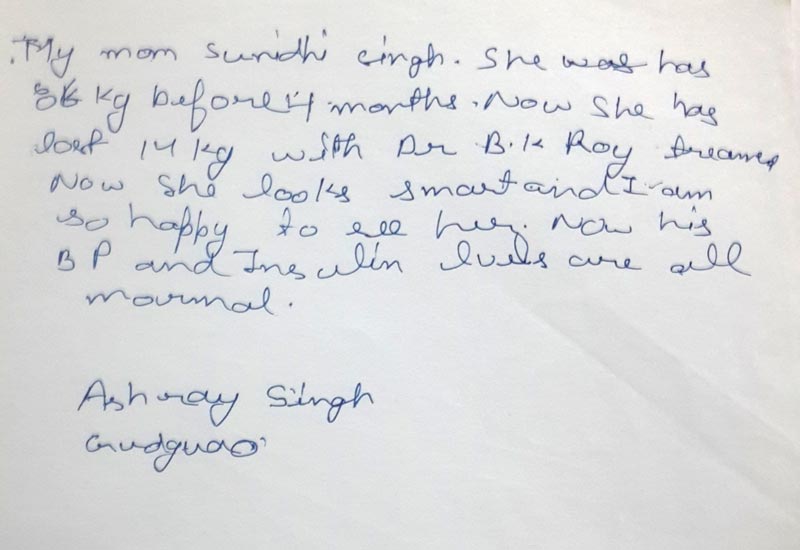 .My mom Sunidhi Singh. She was has
86 kg before 4 months. Now She has
lost 14 kg with Dr B.K Roy
Now She looks smart and I am
so happy to see her. Now his
BP and Insulin levels are all
mormal.
Ashray Singh